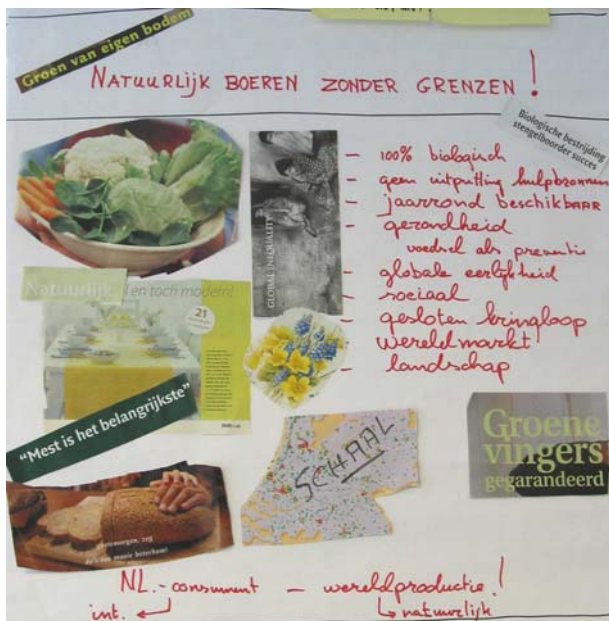 Groen van eigen bodem
NATUURLIJK BOEREN ZONDER GRENZEN!
Biologische bestrijding
stengelboorder succes
– 100% biologisch
– geen uitputting hulpbronnen
– jaarrond beschikbaar
– gezondheid
voedsel als preventie
– globale eerlijkheid
– sociaal
– gesloten kringloop
– wereldmarkt
– landschap
GLOBAL INEQUALITY
Natuurlijk en toch modern!
21
"Mest is het belangrijkste"
SCHAAL
Groene
vingers
gegarandeerd
zeg
da's een mooie boterham!
NL.-consument – wereldproductie!
int. ↵ ↳ natuurlijk